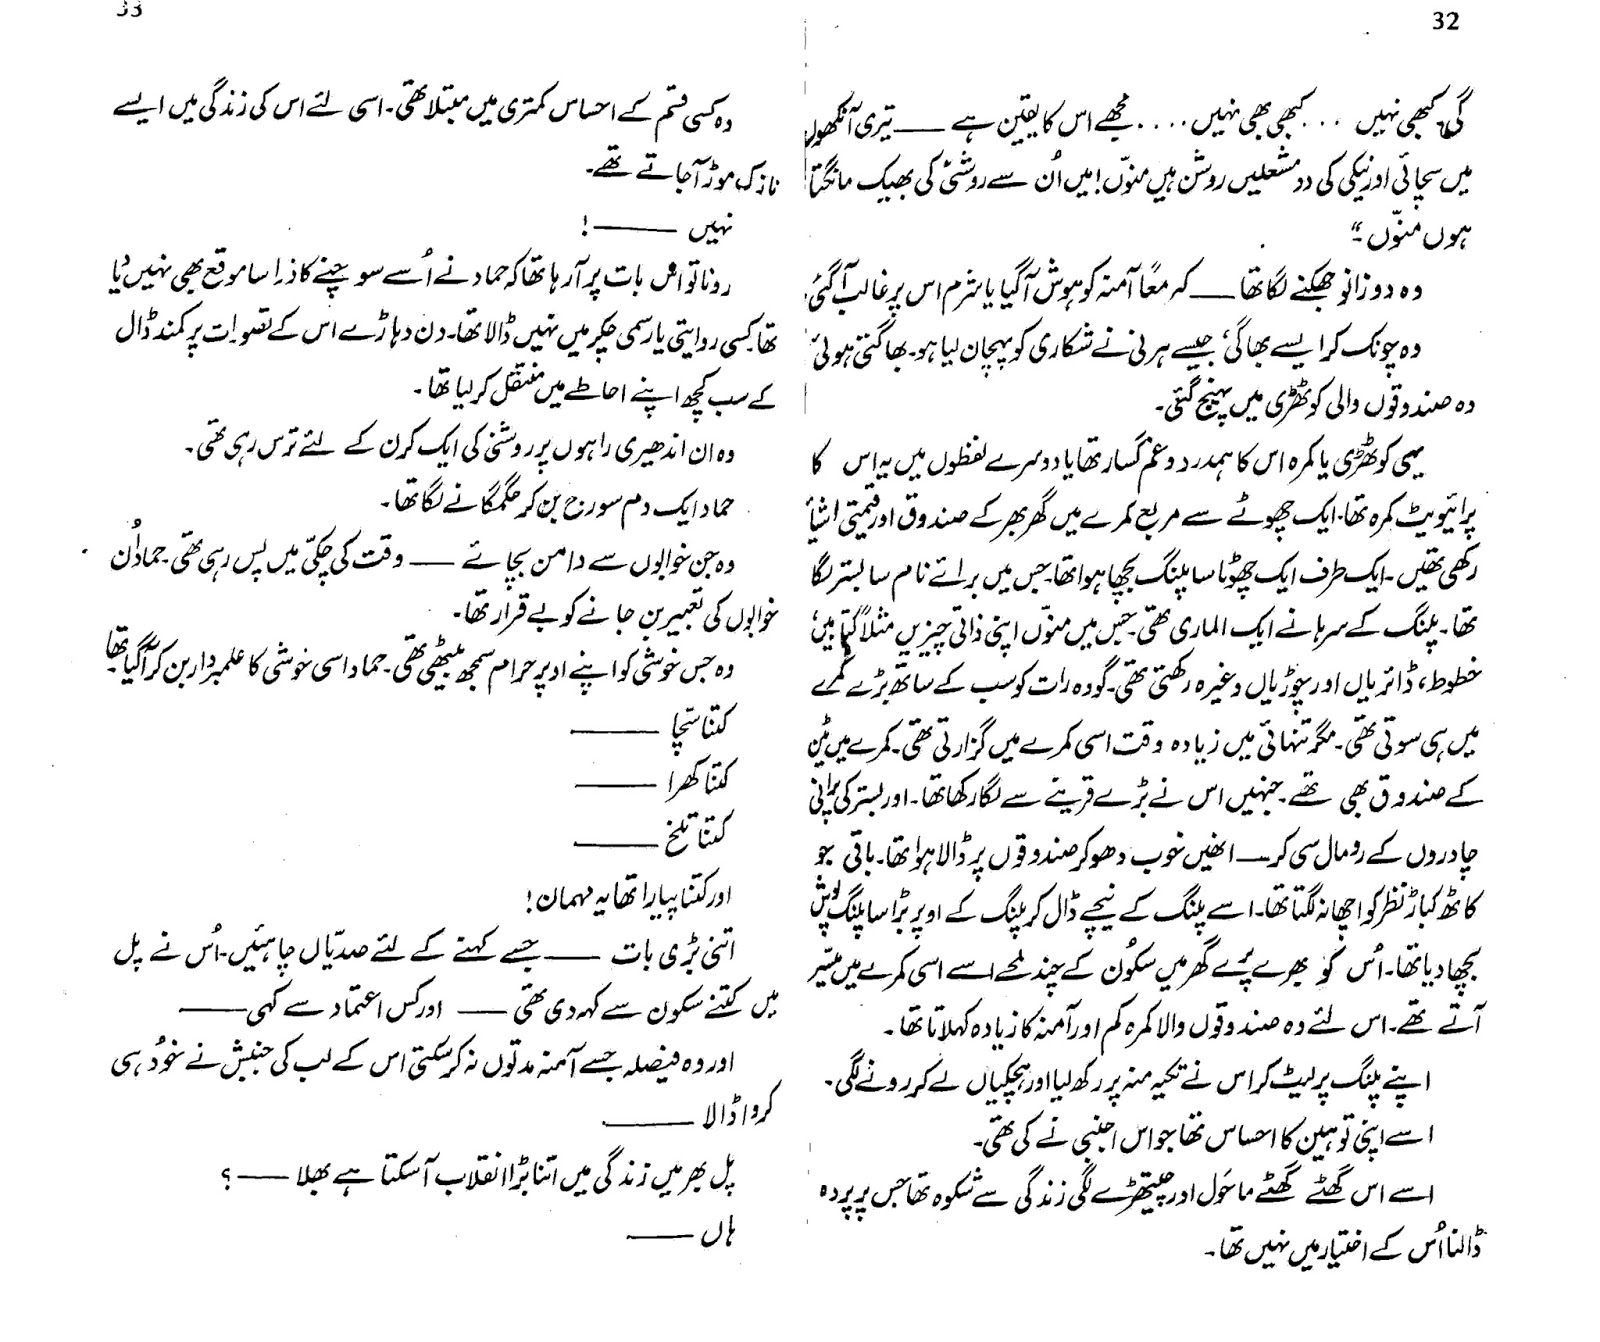 32
گی کبھی نہیں ... کبھی بھی نہیں .... مجھے اس کا یقین ہے —— تیری آنکھوں
میں سچائی اور نیکی کی دو مشعلیں روشن ہیں منوّں! میں اُن سے روشنی کی بھیک مانگتا
ہوں منوّں۔"
وہ دو زانو جھکنے لگا تھا —— کہ معاً آمنہ کو ہوش آگیا یا شرم اس پر غالب آگئی
وہ چونک کر ایسے بھاگی، جیسے ہرنی نے شکاری کو پہچان لیا ہو۔ بھاگتی ہوئی
وہ صندوقوں والی کوٹھڑی میں پہنچ گئی۔
یہی کوٹھڑی یا کمرہ اس کا ہمدرد و غم گسار تھا یا دوسرے لفظوں میں یہ اس کا
پرائیویٹ کمرہ تھا۔ ایک چھوٹے سے مربع کمرے میں گھر بھر کے صندوق اور قیمتی اشیأ
رکھی تھیں۔ ایک طرف ایک چھوٹا سا پلنگ بچھا ہوا تھا۔ جس میں برائے نام سا بستر لگا
تھا۔ پلنگ کے سرہانے ایک الماری تھی۔ جس میں منوّں اپنی ذاتی چیزیں مثلاً کتابیں
خطوط، ڈائریاں اور چوڑیاں وغیرہ رکھتی تھی۔ گو وہ رات کو سب کے ساتھ بڑے کمرے
میں ہی سوتی تھی۔ مگر تنہائی میں زیادہ وقت اسی کمرے میں گزارتی تھی۔ کمرے میں ٹین
کے صندوق بھی تھے۔ جنہیں اس نے بڑے قرینے سے لگا رکھا تھا۔ اور بستر کی پرانی
چادروں کے رومال سی کر —— انھیں خوب دھو کر صندوقوں پر ڈالا ہوا تھا۔ باقی جو
کاٹھ کباڑ نظر کو اچھا نہ لگتا تھا۔ اسے پلنگ کے نیچے ڈال کر پلنگ کے اوپر بڑا سا پلنگ پوش
بچھا دیا تھا۔ اُس کو بھرے پُرے گھر میں سکُون کے چند لمحے اسے اسی کمرے میں میّسر
آتے تھے۔ اس لئے وہ صندوقوں والا کمرہ کم اور آمنہ کا زیادہ کہلاتا تھا۔
اپنے پلنگ پر لیٹ کر اس نے تکیہ منہ پر رکھ لیا اور ہچکیاں لے کر رونے لگی۔
اسے اپنی توہین کا احساس تھا جو اس اجنبی نے کی تھی۔
اسے اس گھٹے گھٹے ماحول اور چیتھڑے لگی زندگی سے شکوہ تھا جس پر پردہ
ڈالنا اُس کے اختیار میں نہیں تھا۔
33
وہ کسی قسم کے احساس کمتری میں مبتلا تھی۔ اسی لئے اس کی زندگی میں ایسے
نازک موڑ آجاتے تھے۔
نہیں ——!
رونا تو اس بات پر آ رہا تھا کہ حماد نے اُسے سوچنے کا ذرا سا موقع بھی نہیں دیا
تھا۔ کسی روایتی یا رسمی چکر میں نہیں ڈالا تھا۔ دن دہاڑے اس کے تصورات پر کمند ڈال
کے سب کچھ اپنے احاطے میں منتقل کر لیا تھا۔
وہ ان اندھیری راہوں پر روشنی کی ایک کرن کے لئے ترس رہی تھی۔
حماد ایک دم سورج بن کر جگمگانے لگا تھا۔
وہ جن خوابوں سے دامن بچائے —— وقت کی چکّی میں پس رہی تھی۔ حماد اُن
خوابوں کی تعبیر بن جانے کو بے قرار تھا۔
وہ جس خوشی کو اپنے اوپر حرام سمجھ بیٹھی تھی۔ حماد اسی خوشی کا علمبردار بن کر آگیا تھا
کتنا سّچا ——
کتنا کھرا ——
کتنا تلخ ——
اور کتنا پیارا تھا یہ مہمان!
اتنی بڑی بات —— جسے کہنے کے لئے صدیّاں چاہئیں۔ اُس نے پل
میں کتنے سکون سے کہہ دی تھی —— اور کس اعتماد سے کہی ——
اور وہ فیصلہ جسے آمنہ مدتوں نہ کر سکتی اس کے لب کی جنبش نے خوُد ہی
کروا ڈالا ——
پل بھر میں زندگی میں اتنا بڑا انقلاب آ سکتا ہے بھلا ——؟
ہاں ——